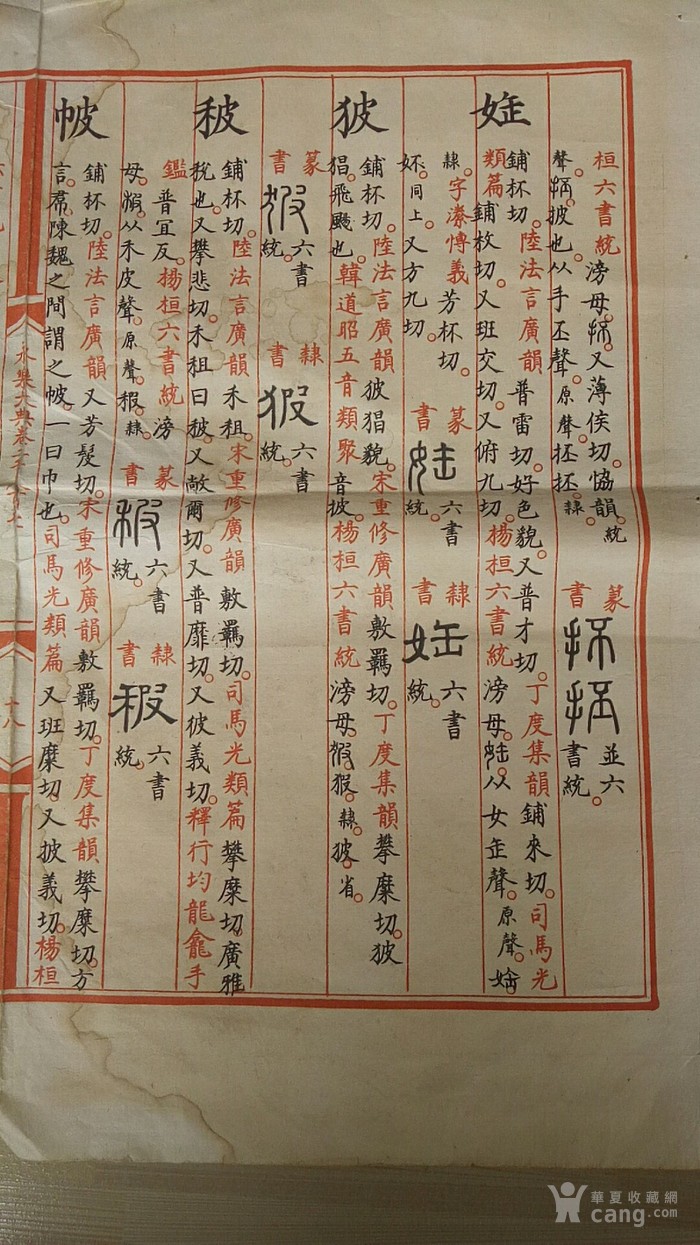 桓六書統滂母又薄侯切協韻統
聲披也从手丕聲原聲抷抷隸
篆書
並六書統
㛅
鋪杯切陸法言廣韻普雷切好色貌又普才切丁度集韻鋪來切司馬光
類篇鋪枚切又班交切又俯九切楊桓六書統滂母从女聲原聲
隸字潫慱義芳杯切
妚同上又方九切
篆書
六書統
隸書
六書統
狓
鋪杯切陸法言廣韻狓猖貌宋重修廣韻敷羈切丁度集韻攀糜切狓
猖飛颺也韓道昭五音類聚音披楊桓六書統滂母隸狓省
篆書
六書統
隸書
六書統
秛
鋪杯切陸法言廣韻禾租宋重修廣韻敷羈切司馬光類篇攀糜切廣雅
稅也又攀悲切禾租曰秛又敞爾切又普靡切又彼義切釋行均龍龕手
鑑普宜反楊桓六書統滂
母从禾皮聲原聲隸
篆書
六書統
隸書
六書統
帔
鋪杯切陸法言廣韻又芳髲切宋重修廣韻敷羈切丁度集韻攀糜切方
言帬陳魏之間謂之帔一曰巾也司馬光類篇又班糜切又披義切楊桓
永樂大典卷二千
十八
華夏收藏網
cang.com